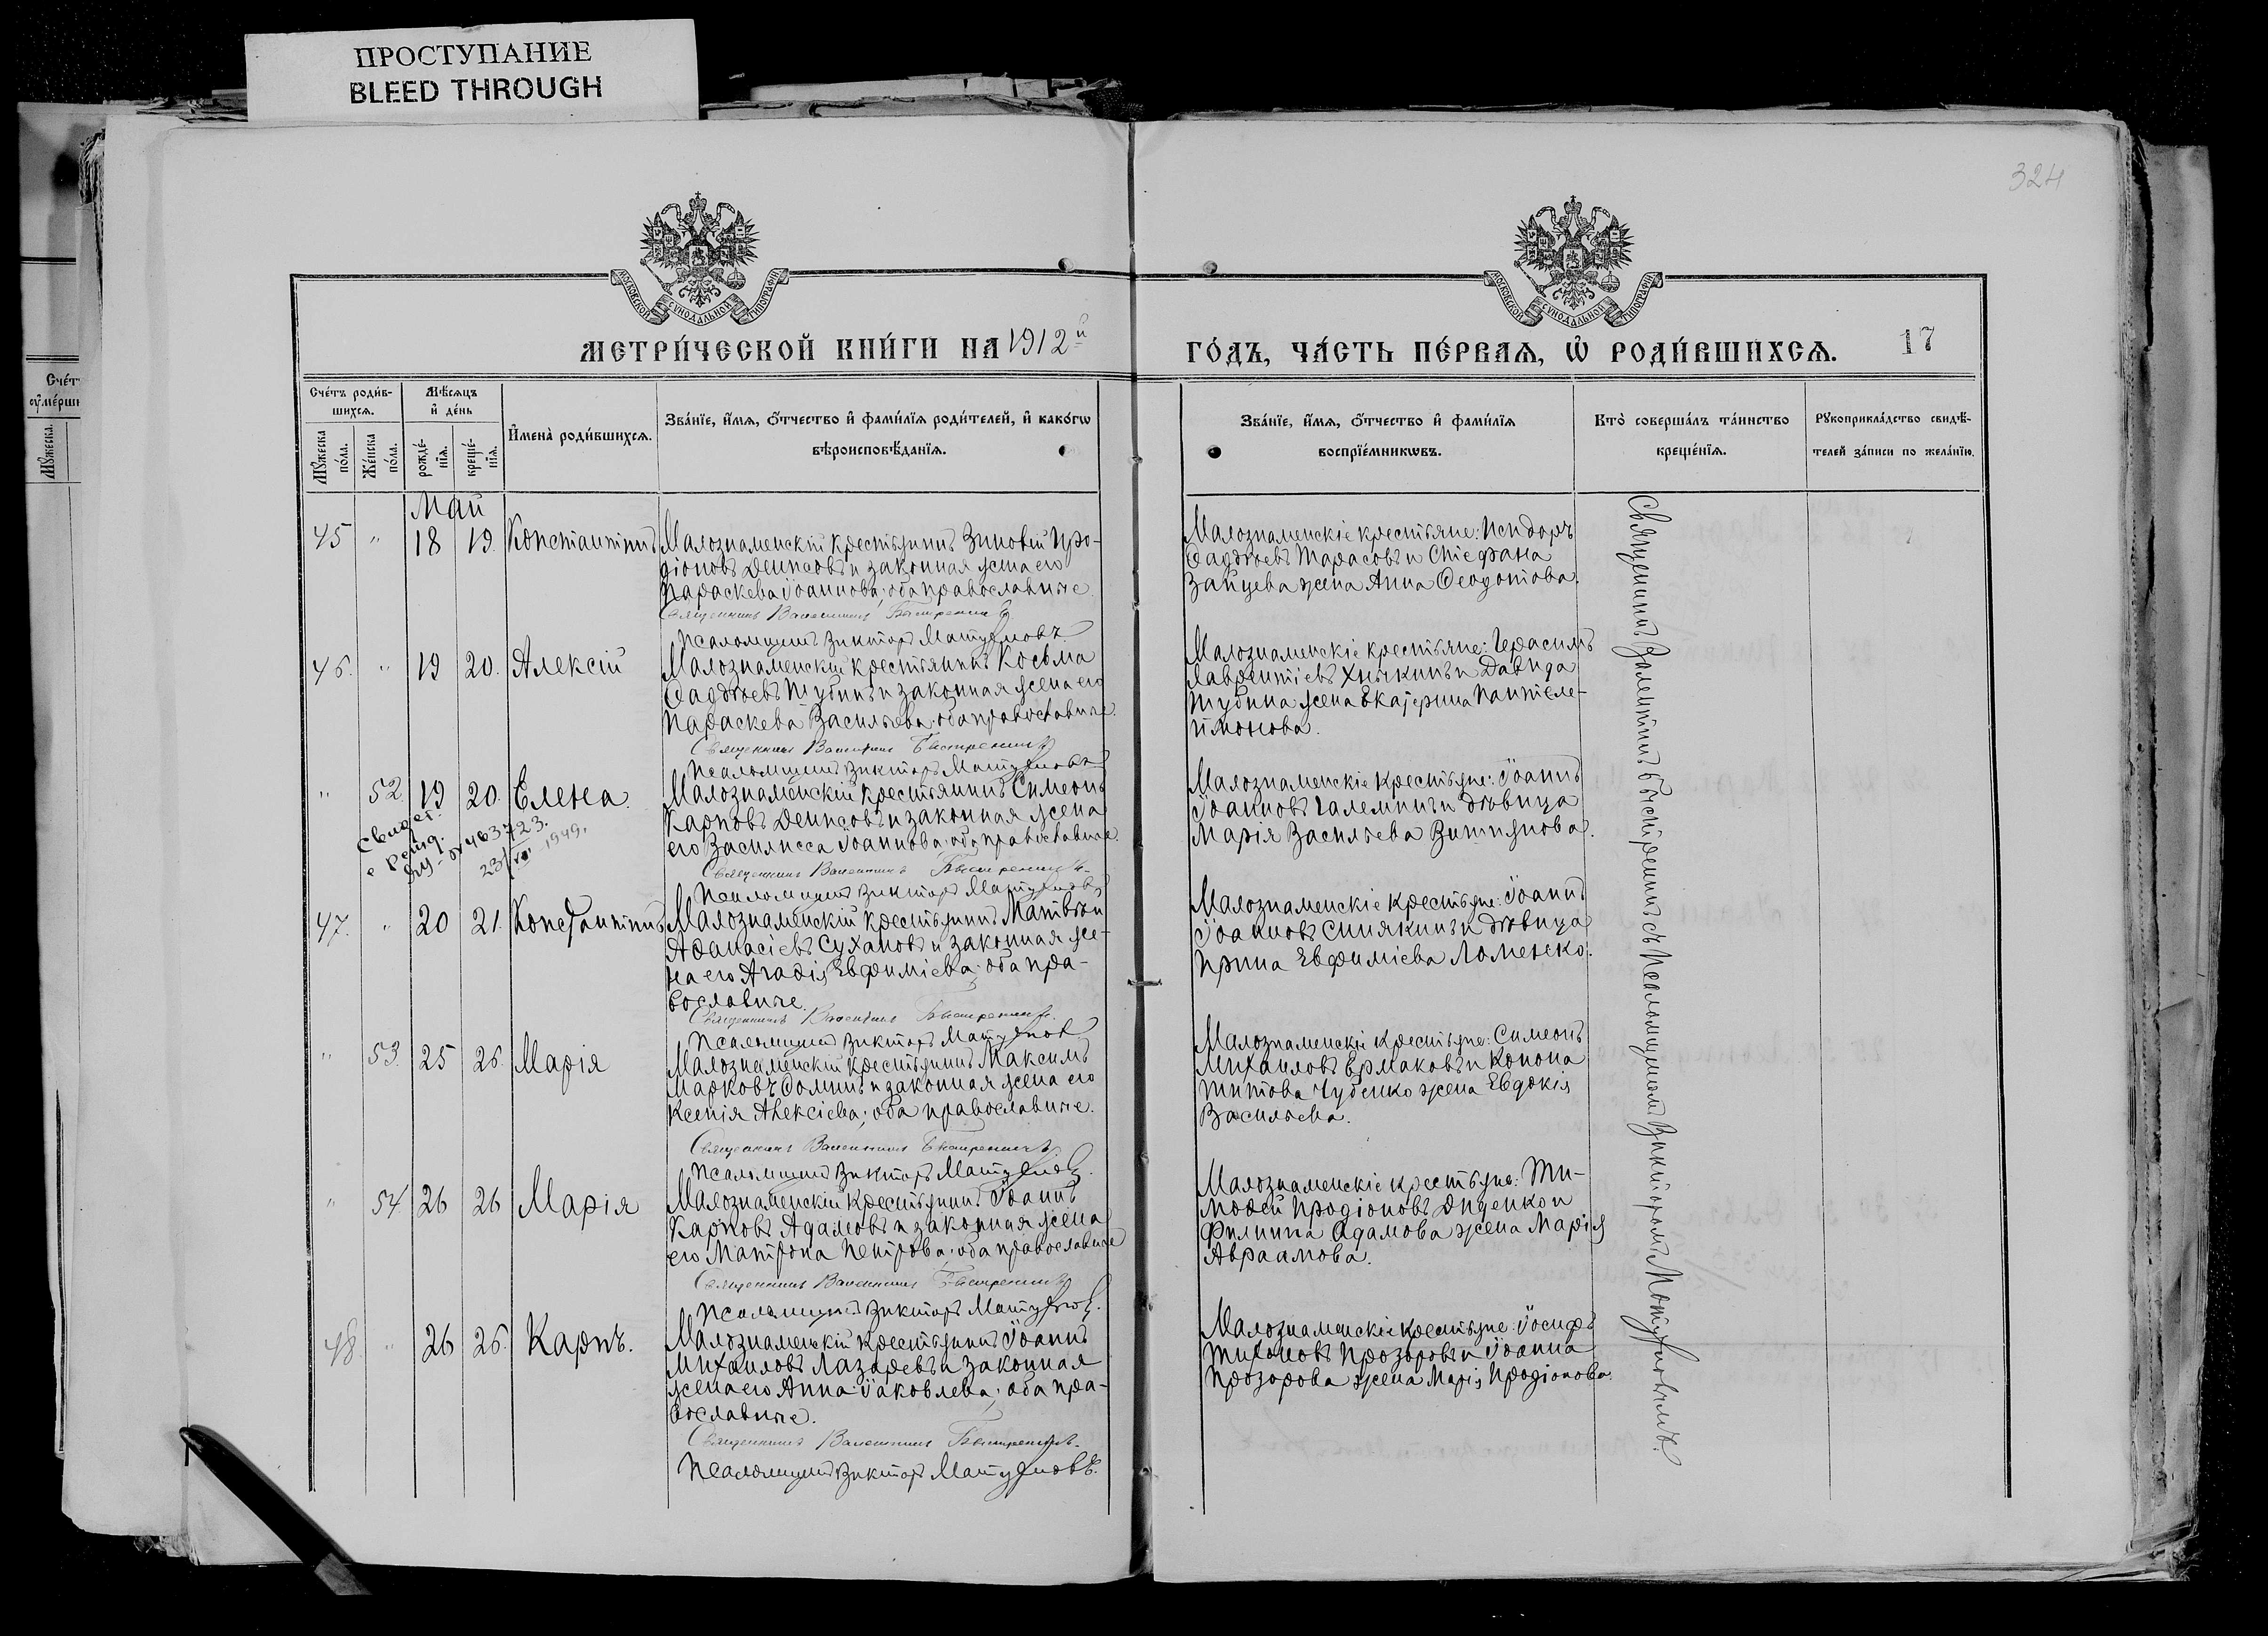 ПРОСТУПАНИЕ
BLEED THROUGH
324
МОСКОВСКОЙ СУНОДАЛЬНОЙ ТИПОГРАФІИ
МОСКОВСКОЙ СУНОДАЛЬНОЙ ТИПОГРАФІИ
МЕТРИ́ЧЕСКОЙ КНИ́ГИ НА 1912й
ГО́ДЪ, ЧА́СТЬ ПЕ́РВАѦ, Ѡ РОДИ́ВШИХСѦ. 17
Сче́тъ роди́в-
шихсѧ.
Мѣ́сѧцъ
и҆ де́нь
Мꙋ́жеска
по́ла.
Же́нска
по́ла.
рожде́-
нїѧ.
креще́-
нїѧ.
И҆мена̀ роди́вшихсѧ.
Зва́нїе, и҆́мѧ, ѻ҆́тчество и҆ фами́лїѧ роди́телей, и҆ како́гѡ
вѣроисповѣ́данїѧ.
Зва́нїе, и҆́мѧ, ѻ҆́тчество и҆ фами́лїѧ
воспрїе́мникѡвъ.
Кто̀ соверша́лъ та́инство
креще́нїѧ.
Рꙋкоприкла́дство свидѣ́-
телей за́писи по жела́нїю.
Май
45 " 18 19. Константинъ
Малознаменскій крестьянинъ Зиновій Иро-
діоновъ Денисовъ и законная жена его
Параскева Іоаннова; оба православные.
Священникъ Валентинъ Быстренинъ
Псаломщикъ Викторъ
Малознаменскіе крестьяне: Исидоръ
Ѳаддѣевъ Тарасовъ и Стефана
Зайцева жена Анна Ѳеодотова.
46. " 19 20. Алексій
Малознаменскій крестьянинъ Косьма
Ѳаддѣевъ Шубинъ и законная жена его
Параскева Васильева; оба православные.
Священникъ Валентинъ Быстренинъ
Псаломщикъ Викторъ
Малознаменскіе крестьяне: Герасимъ
Лаврентіевъ и Давида
Шубина жена Екатерина Пантеле-
имонова.
" 52. 19 20. Елена.
Свидет.
463723.
23/VII 1949.
Малознаменскій крестьянинъ Симеонъ
Карповъ Денисовъ и законная жена
его Василисса Іоаннова; оба православные.
Священникъ Валентинъ Быстренинъ
Псаломщикъ Викторъ
Малознаменскіе крестьяне: Іоаннъ
Іоанновъ и дѣвица
Марія Васильева
47. " 20 21. Константинъ
Малознаменскій крестьянинъ Матвѣй
Аѳанасіевъ Сухановъ и законная же-
на его Агаѳія Евфиміева; оба пра-
вославные.
Священникъ Валентинъ Быстренинъ
Псаломщикъ Викторъ
Малознаменскіе крестьяне: Іоаннъ
Іоанновъ Синякинъ и дѣвица
Ирина Евфиміева
" 53. 25 26. Марія
Малознаменскій крестьянинъ Максимъ
Марковъ Ѳоминъ и законная жена его
Ксенія Алексіева; оба православные.
Священникъ Валентинъ Быстренинъ
Псаломщикъ Викторъ
Малознаменскіе крестьяне: Симеонъ
Михаиловъ Ермаковъ и Конона
Титова Чубенко жена Евдокія
Васильева.
" 54 26 26 Марія
Малознаменскій крестьянинъ Іоаннъ
Карповъ Адамовъ и законная жена
его Матрона Петрова; оба православные
Священникъ Валентинъ Быстренинъ
Псаломщикъ Викторъ
Малознаменскіе крестьяне: Ти-
моѳей Иродіоновъ Диденко и
Филиппа Адамова жена Марія
Авраамова.
48. " 26 26. Карпъ.
Малознаменскій крестьянинъ Іоаннъ
Михаиловъ Лазаревъ и законная
жена его Анна Іаковлева; оба пра-
вославные.
Священникъ Валентинъ Быстренинъ.
Псаломщикъ Викторъ
Малознаменскіе крестьяне: Іосифъ
Тихоновъ Прозоровъ и Іоанна
Прозорова жена Марія Иродіонова.
Священникъ Валентинъ Быстренинъ съ псаломщикомъ Викторомъ